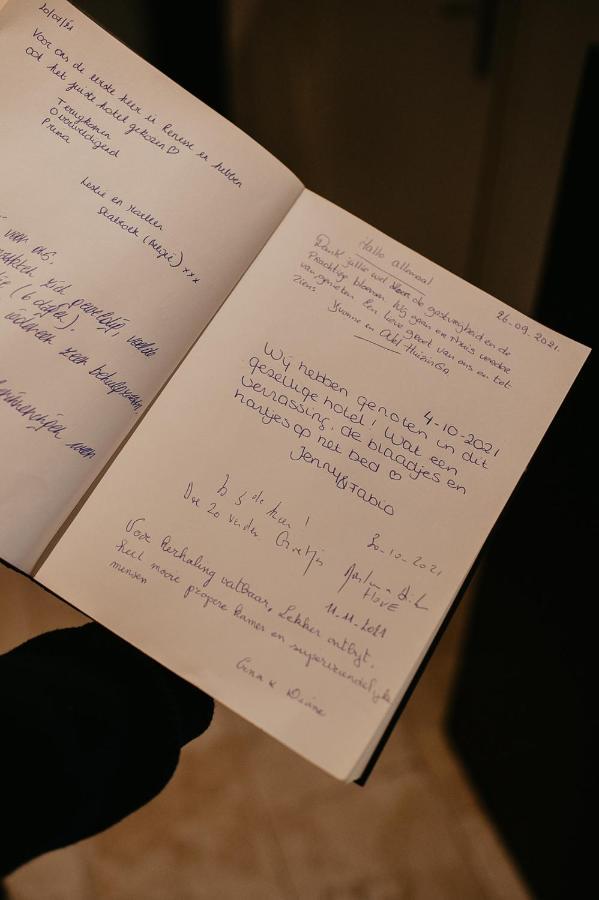 20/07/21
Voor ons de eerste keer in Renesse en hebben
ook het juiste hotel gekozen ♡
Terugkomen
Overweldigend
Prima
Leslie en
Stabroek (België) xxx
voor ons.
(6 dagen).
zeer behulpzaam,
Hallo allemaal
26-09-2021.
Dank jullie wel voor de gastvrijheid en de
Prachtige bloemen. Wij gaan er thuis verder
van genieten. Een lieve groet van ons en tot
Ziens
Yvonne en Abel Huizinga
4-10-2021
Wij hebben genoten in dit
gezellige hotel! Wat een
verrassing, de blaadjes en
hartjes op het bed ♡
Jenny & Fabio
20-10-2021
Zo 5 de keer!
Doe zo verder Groetjes
11-11-2021
Voor herhaling vatbaar, Lekker ontbijt,
heel mooie propere kamer en supervriendelijke
mensen
Gina & Diane